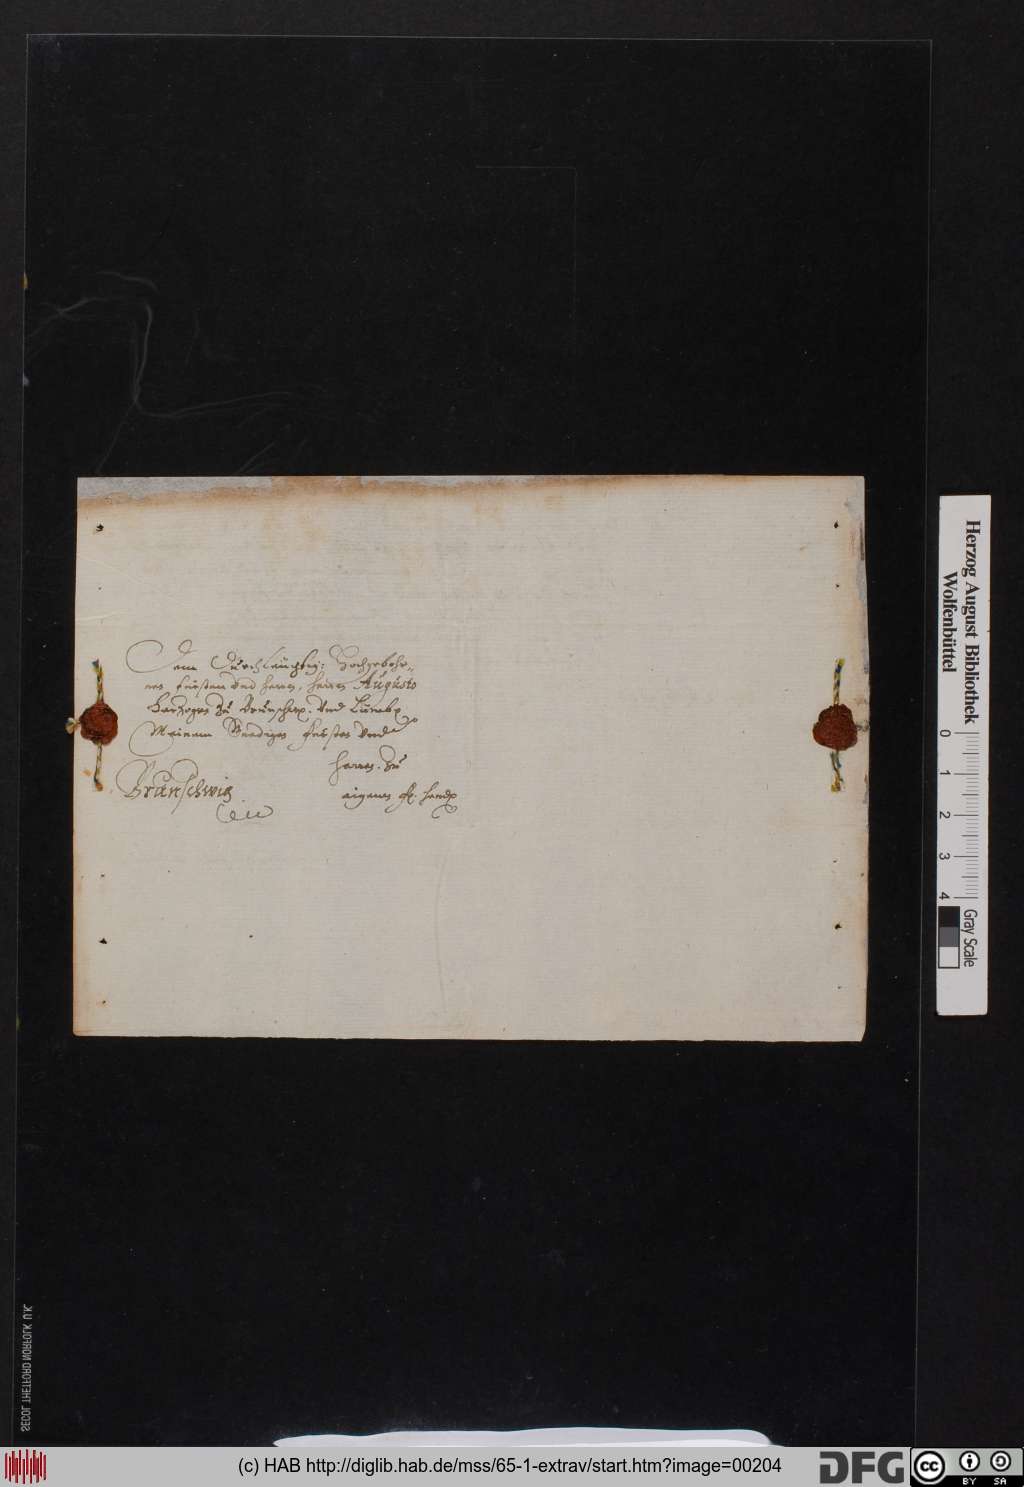 Dem Durchleuchtig: Hochgebohr„
nen Fürsten und Herrn, Herrn Augusto
Hertzogen zu Braunschw. und Lüneb.
Meinem Gnedigen Fürsten und
Herrn. Zu
Braunschwig
aigenen fr. hand
Herzog August Bibliothek
Wolfenbüttel
0 1 2 3 4
Gray Scale
SECOL THETFORD NORFOLK U.K.
(c) HAB http://diglib.hab.de/mss/65-1-extrav/start.htm?image=00204
DFG
cc
BY SA